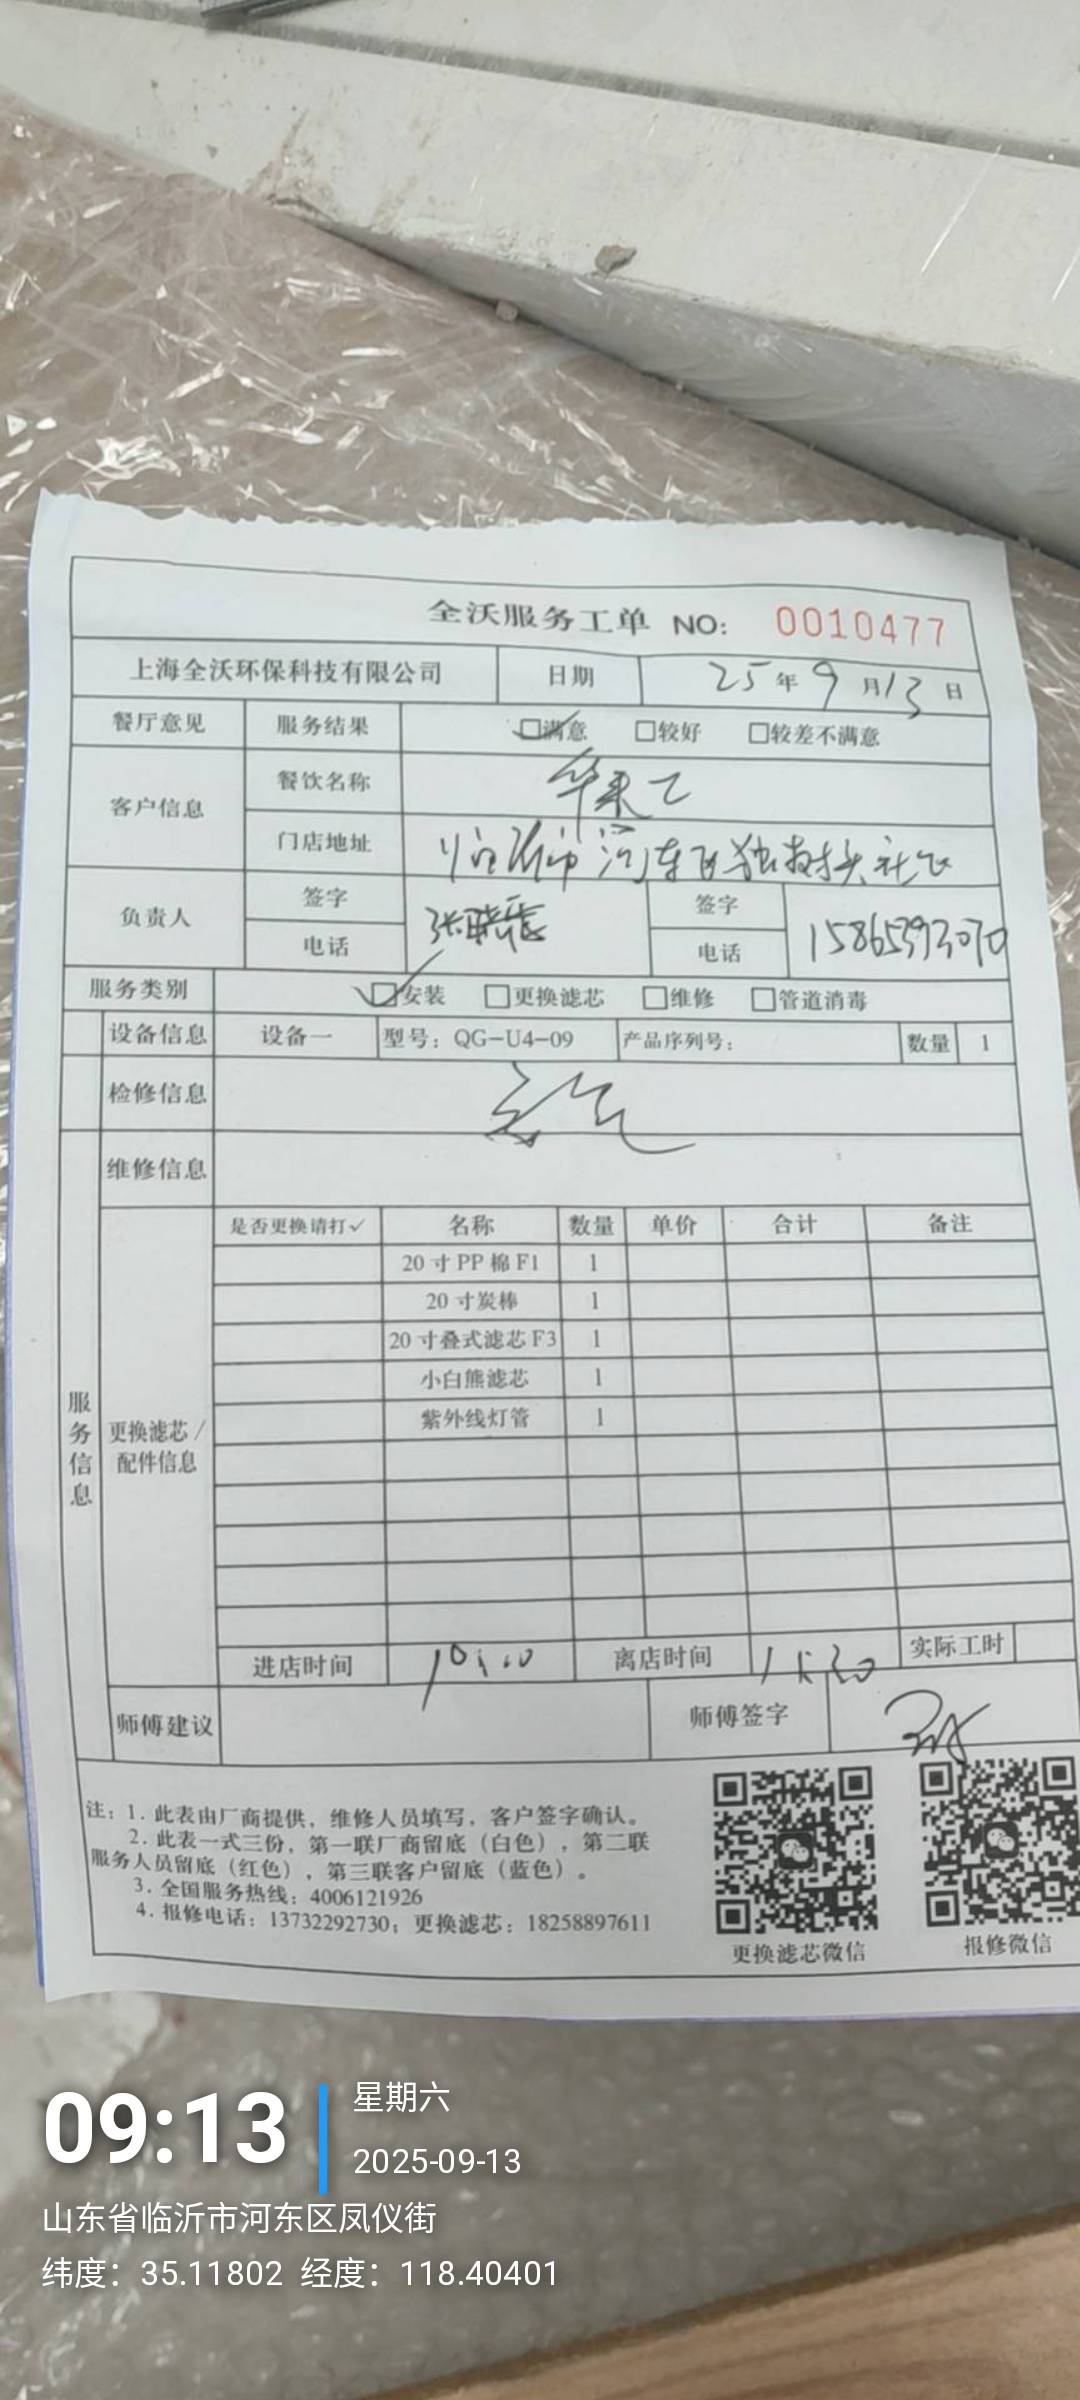 全沃服务工单 NO: 0010477
上海全沃环保科技有限公司 日期 25年9月13日
餐厅意见 服务结果 ☑满意 □较好 □较差不满意
客户信息 餐饮名称 华莱士
门店地址 临沂市河东区独树头社区
负责人 签字 签字
电话 电话 15865393070
服务类别 ☑安装 □更换滤芯 □维修 □管道消毒
设备信息 设备一 型号：QG-U4-09 产品序列号： 数量 1
检修信息
维修信息
服务信息
更换滤芯/配件信息
是否更换请打✓ 名称 数量 单价 合计 备注
20寸PP棉F1 1
20寸炭棒 1
20寸叠式滤芯F3 1
小白熊滤芯 1
紫外线灯管 1
进店时间 10:00 离店时间 实际工时
师傅建议 师傅签字
注：1. 此表由厂商提供，维修人员填写，客户签字确认。
2. 此表一式三份，第一联厂商留底（白色），第二联
服务人员留底（红色），第三联客户留底（蓝色）。
3. 全国服务热线：4006121926
4. 报修电话：13732292730；更换滤芯：18258897611
更换滤芯微信 报修微信
09:13
星期六
2025-09-13
山东省临沂市河东区凤仪街
纬度：35.11802 经度：118.40401